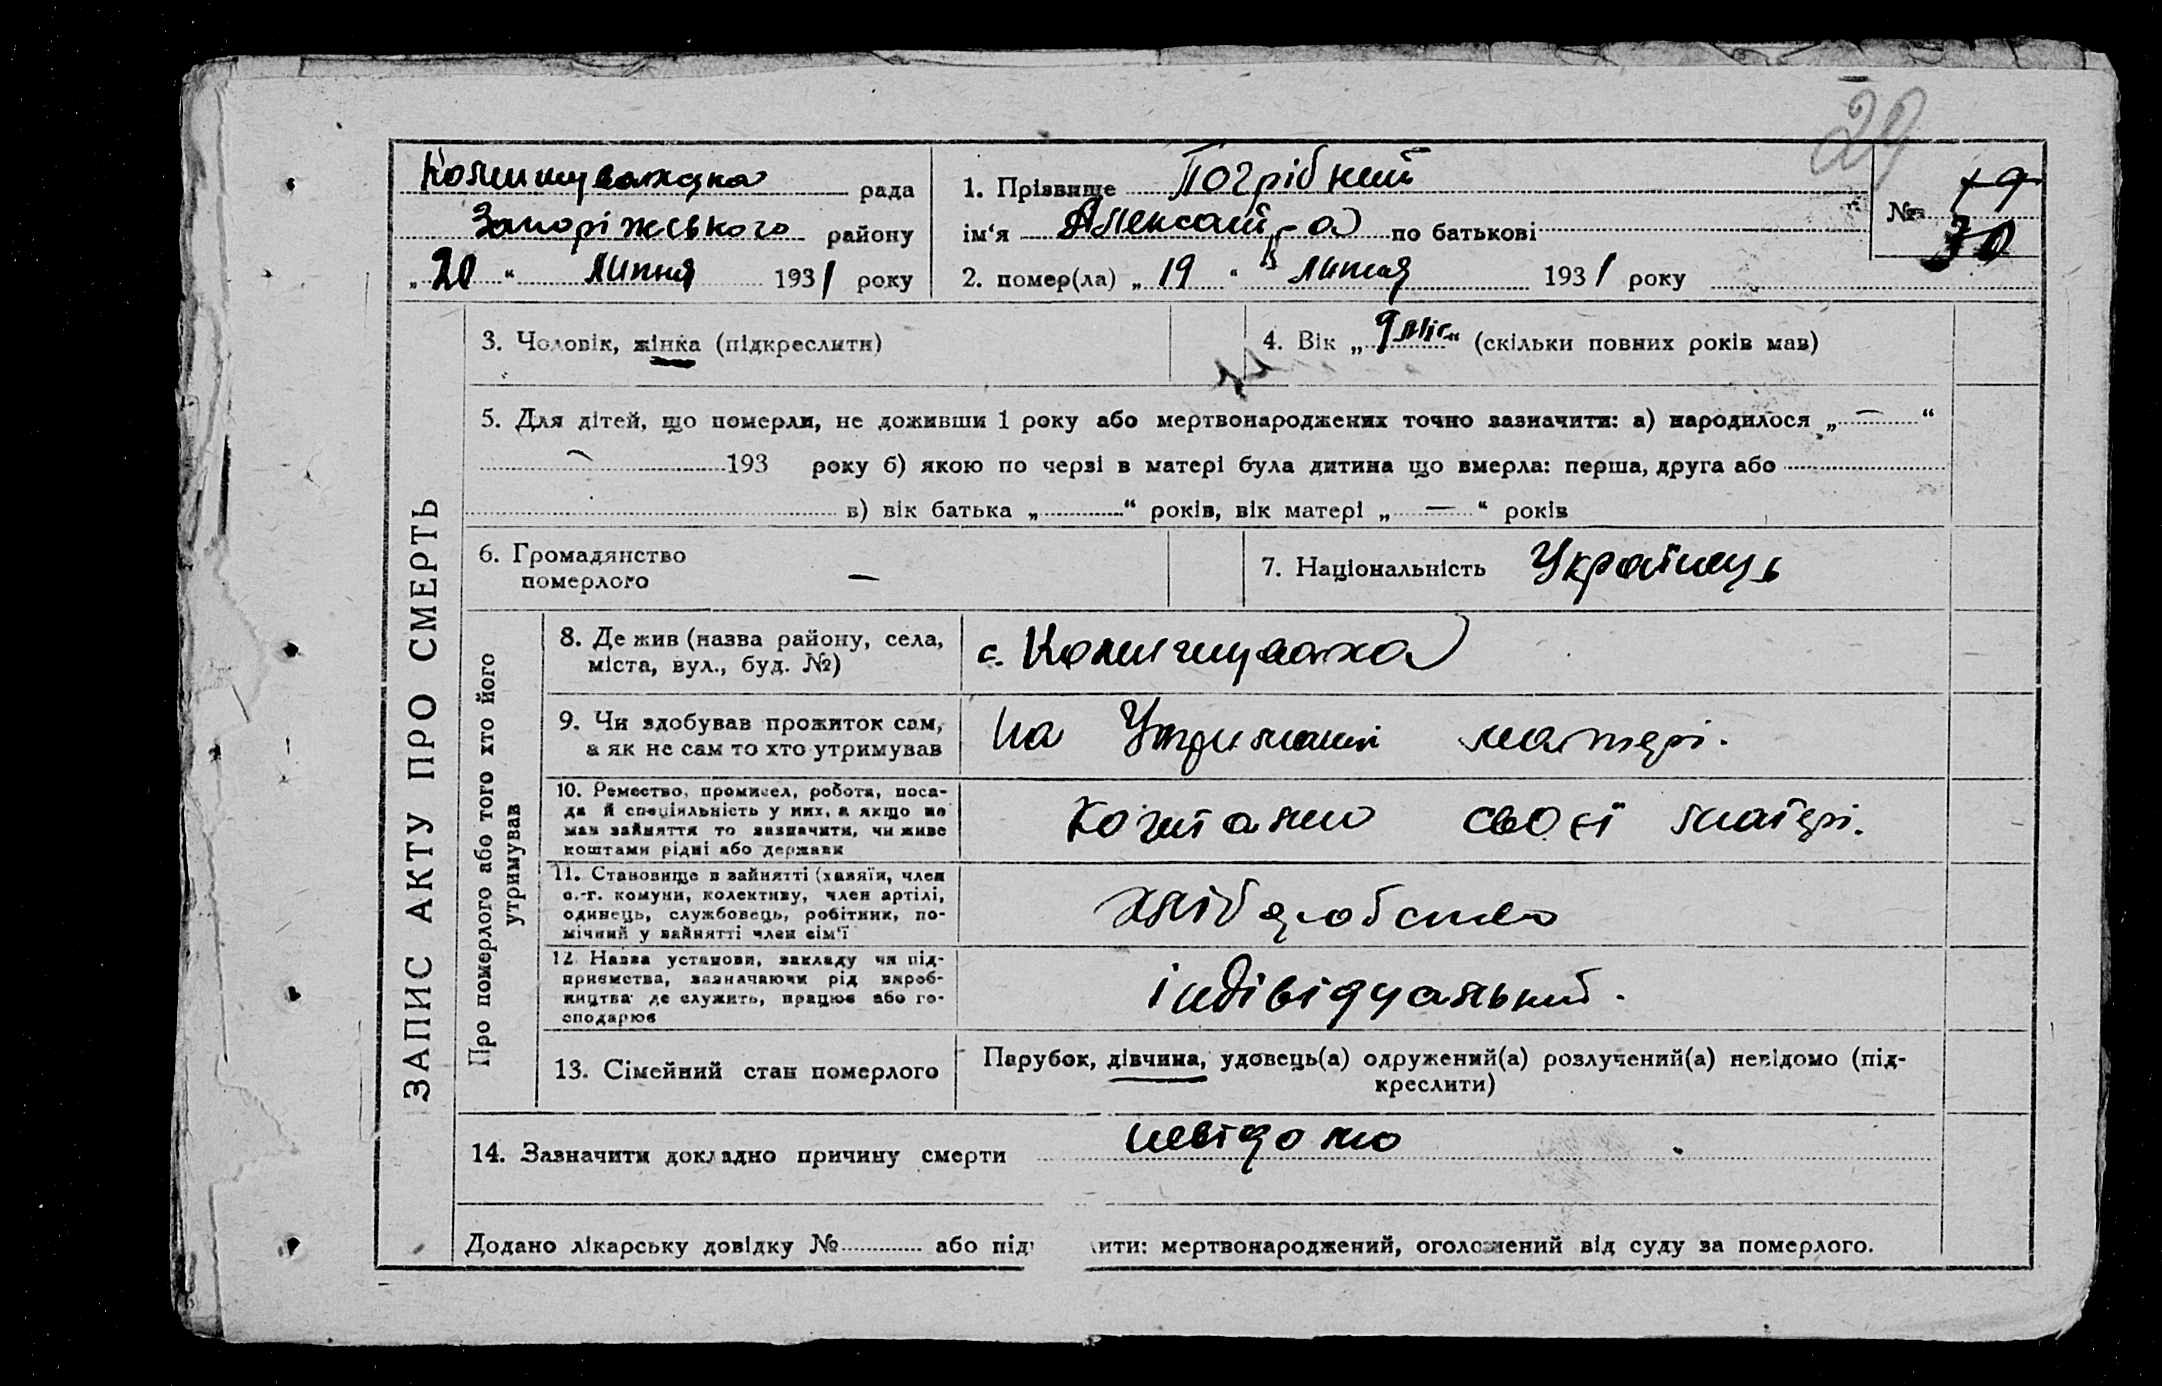 29
Комишуваська рада
Запоріжського району
„20“ липня 1931 року
1. Прізвище Погрібний
ім‘я Александра по батькові
2. помер(ла) „19“ липня 1931 року
№ 19
30
ЗАПИС АКТУ ПРО СМЕРТЬ
3. Чоловік, жінка (підкреслити)
4. Вік „9 міс“ (скільки повних років мав)
5. Для дітей, що померли, не доживши 1 року або мертвонароджених точно зазначити: а) народилося „—“
— 193 року б) якою по черзі в матері була дитина що вмерла: перша, друга або
в) вік батька „ “ років, вік матері „ — “ років
6. Громадянство
померлого —
7. Національність Українець
Про померлого або того хто його
утримував
8. Де жив (назва району, села,
міста, вул., буд. №)
с. Комишуваха
9. Чи здобував прожиток сам,
а як не сам то хто утримував
на Утриманні матері.
10. Ремество, промисел, робота, поса-
да й спеціяльність у них, а якщо не
мав зайняття то зазначити, чи живе
коштами рідні або держави
коштамы своєї матері.
11. Становище в зайнятті (хазяїн, член
с.-г. комуни, колективу, член артілі,
одинець, службовець, робітник, по-
мічний у зайнятті член сім‘ї
хлібаробство
12. Назва установи, закладу чи під-
приємства, зазначаючи рід вироб-
ництва де служить, працює або го-
сподарює
індівідуальний.
13. Сімейний стан померлого
Парубок, дівчина, удовець(а) одружений(а) розлучений(а) невідомо (під-
креслити)
14. Зазначити докладно причину смерти невідомо
Додано лікарську довідку № або під ити: мертвонароджений, оголошений від суду за померлого.